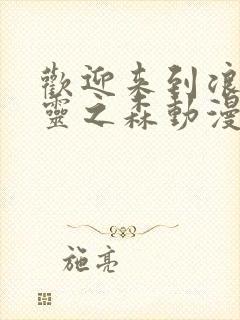 歡迎来到浪
靈之森動漫
施亮